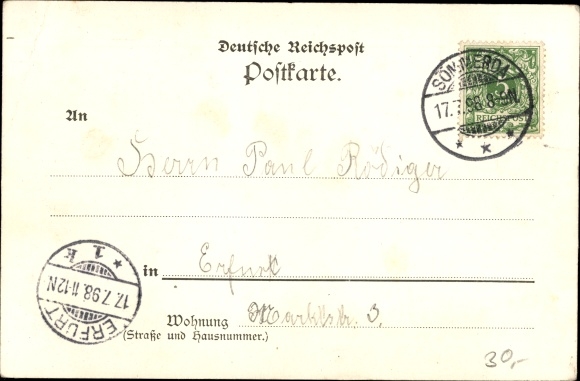 Deutsche Reichspost
Postkarte.
SÖMMERDA
17.7.98. 8-9N
REICHSPOST
An
Herrn Paul Rödiger
in Erfurt
ERFURT
17.7.98. 11-12N
* 1. k
Wohnung Marktstr. 3.
(Straße und Hausnummer.)
30,-